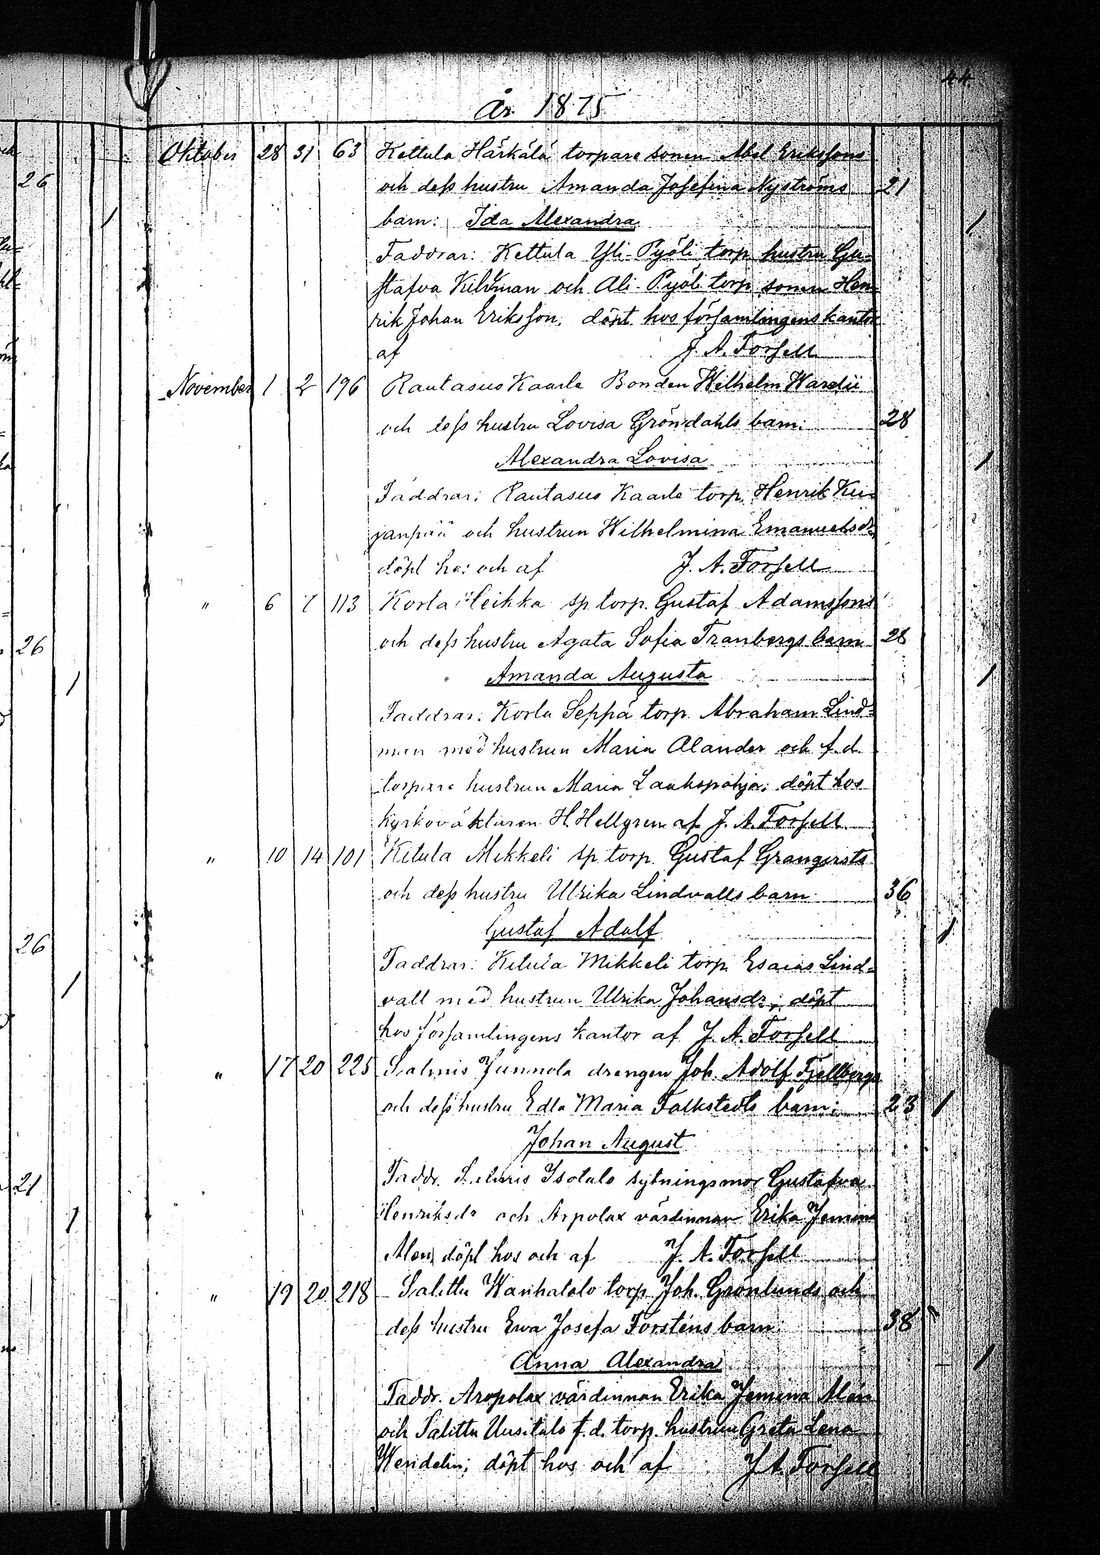 44.
År 1875
Oktober 28 31 63 Kettula Härkälä torpare sonen Abel Erikssons
26
och dess hustru Amanda Josefina Nyströms 21
barn: Ida Alexandra 1
1
Faddrar: Kettula Yli-Pyöli torp. hustru Gu-
stafva Kihlman och Ali-Pyöli torp. sonen Hen-
rik Johan Eriksson; döpt hos församlingens kantor
af J. A. Forsell
November 1 2 196 Rautasuo Kaarle Bonden Wilhelm
och dess hustru Lovisa Gröndahls barn: 28
Alexandra Lovisa 1
Faddrar: Rautasuo Kaarle torp. Henrik Kui-
janpää och hustrun Wilhelmina Emanuelsdr
döpt hos och af J. A. Forsell
" 6 7 113 Korla Heikka sp. torp. Gustaf Adamssons
och dess hustru Agata Sofia Tranbergs barn 28
26
Amanda Augusta 1
1
Faddrar: Korla Seppä torp. Abraham Lind-
man med hustrun Maria Alander och f.d.
torpare hustrun Maria Laukspohja; döpt hos
kyrkoväktaren H. Hellgren af J. A. Forsell
" 10 14 101 Kitula Mikkeli sp. torp. Gustaf
och dess hustru Ulrika Lindvalls barn 36
Gustaf Adolf 1
26
Faddrar: Kitula Mikkeli torp. Esaias Lind-
vall med hustrun Ulrika Johansdr; döpt
1
hos församlingens kantor af J. A. Forsell
" 17 20 225 Salmis Junnola drengen Joh. Adolf Fjellbergs
och dess hustru Edla Maria Falkstedts barn: 23 1
Johan August
Faddr. Salmis Isotalo sytningsmor Gustafva
21
Henriksdr och Arpolax värdinnan Erika Jemina
1
Alen, döpt hos och af J. A. Forsell
" 19 20 218 Salittu Wanhatalo torp. Joh. Grönlunds och
dess hustru Ewa Josefa Forsténs barn: 38
Anna Alexandra 1
Faddr. Arpolax värdinnan Erika Jemina Alén
och Salittu Uusitalo f.d. torp. hustrun Greta Lena
Wendelin; döpt hos och af J A Forsell